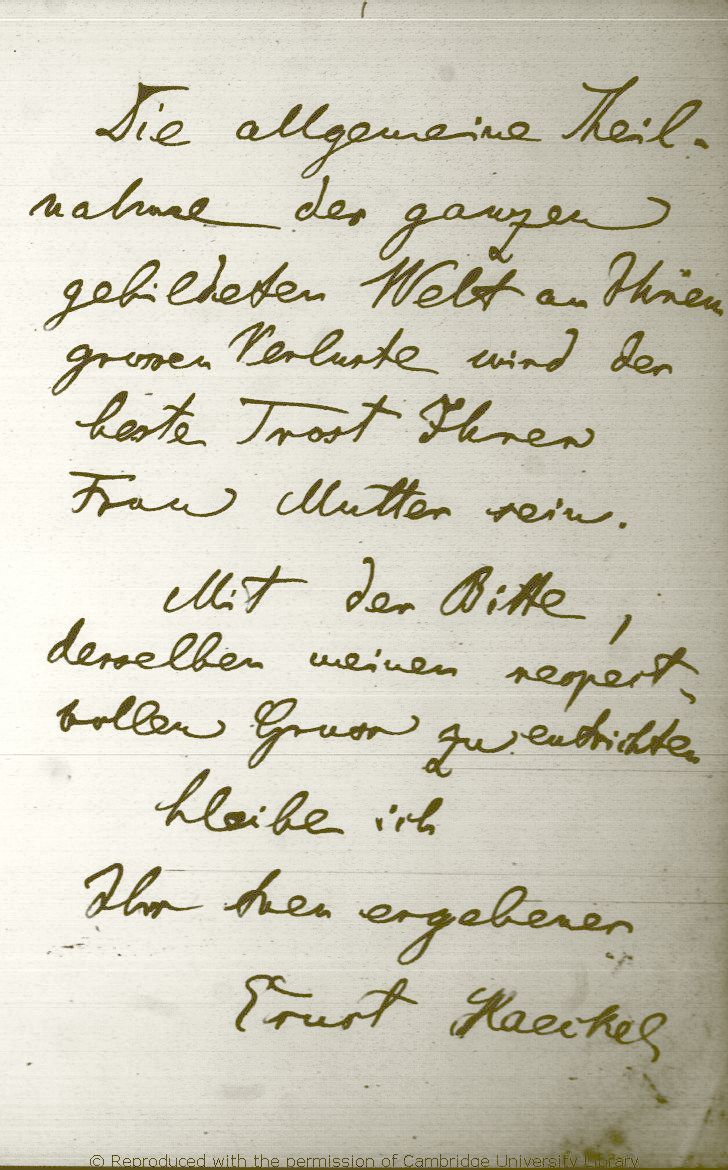 Die allgemeine Theil-
nahme der ganzen
gebildeten Welt an Ihrem
grossen Verluste wird der
beste Trost Ihrer
Frau Mutter sein.
Mit der Bitte,
derselben meinen respect-
vollen Gruss zu entrichten
bleibe ich
Ihr treu ergebener
Ernst Haeckel
© Reproduced with the permission of Cambridge University Library